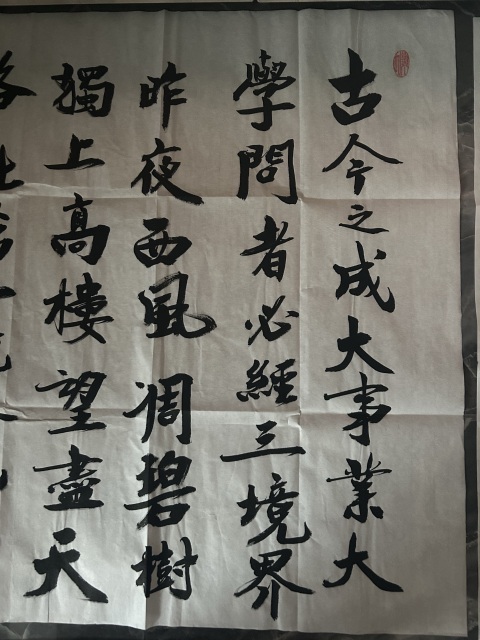 古今之成大事業大
學問者必經三境界
昨夜西風凋碧樹
獨上高樓望盡天